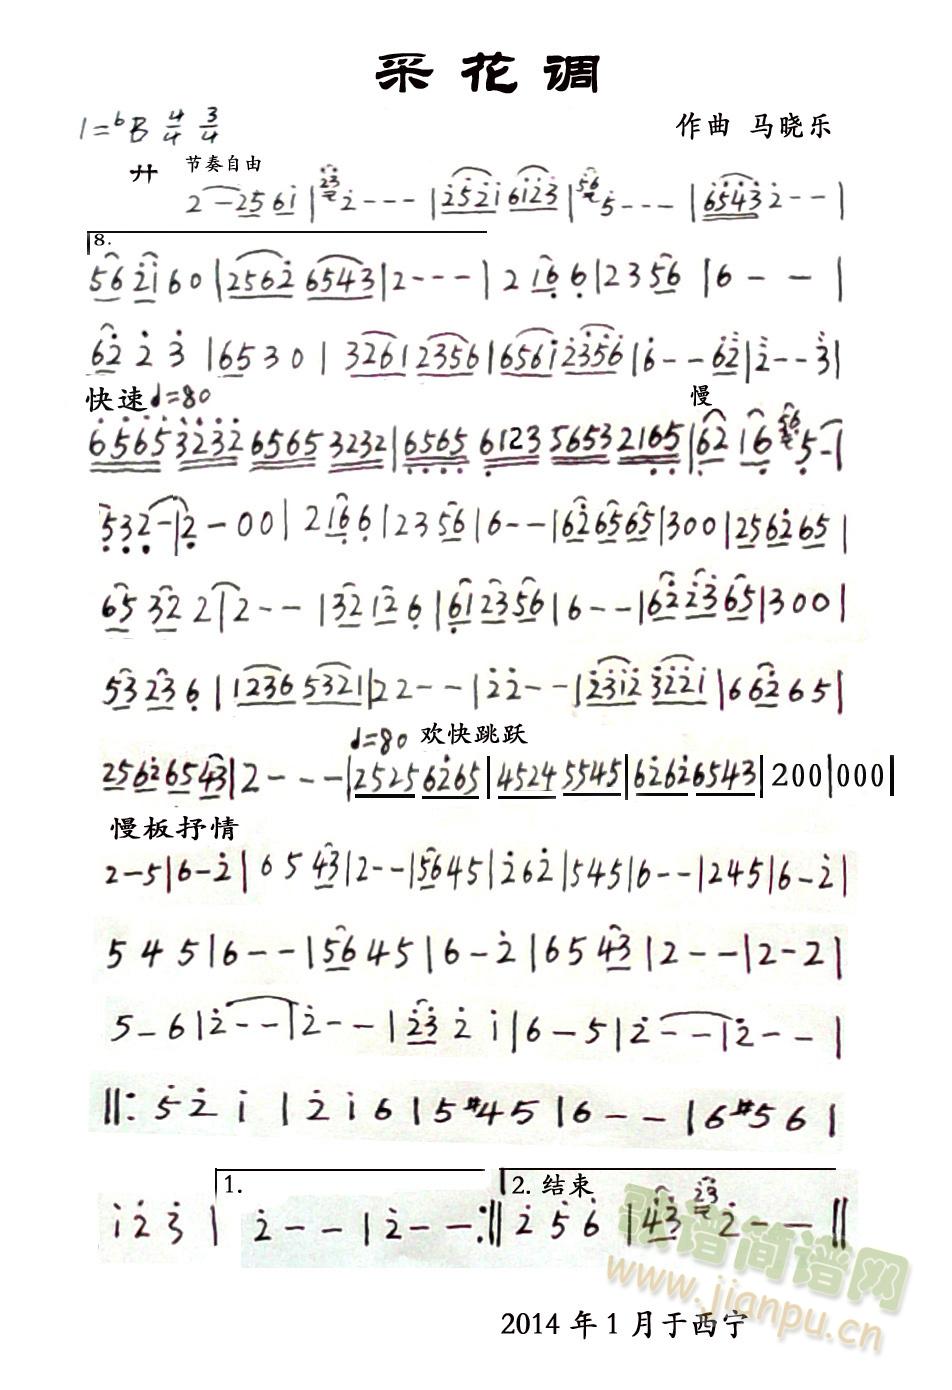 采花调
1=bB 4/4 3/4
作曲 马晓乐
廾 节奏自由
2 - 25 61 | 23 2 - - - | 2521 6123 | 56 5 - - - | 6543 2 - - |
8.
56 21 6 0 | 2562 6543 | 2 - - - | 2 16 6 | 2 3 56 | 6 - - |
62 2 3 | 65 3 0 | 3261 2356 | 6561 2356 | 6 - - 62 | 2 - - 3 |
快速 ♩=80 慢
6565 3232 6565 3232 | 6565 6123 5653 2165 | 62 16 56 5 - |
5 3 2 - | 2 - 0 0 | 2 16 6 | 2 3 56 | 6 - - | 62 65 65 | 3 0 0 | 25 62 65 |
65 32 2 | 2 - - | 32 12 6 | 61 23 56 | 6 - - | 62 23 65 | 3 0 0 |
53 23 6 | 1236 5321 | 2 2 - - | 2 2 - - | 2312 3221 | 6 62 6 5 |
♩=80 欢快跳跃
25 62 65 43 | 2 - - - | 2525 6265 | 4524 5545 | 6262 6543 | 2 0 0 | 0 0 0 |
慢板抒情
2 - 5 | 6 - 2 | 6 5 43 | 2 - - | 56 4 5 | 2 6 2 | 5 4 5 | 6 - - | 2 4 5 | 6 - 2 |
5 4 5 | 6 - - | 56 4 5 | 6 - 2 | 6 5 43 | 2 - - | 2 - 2 |
5 - 6 | 2 - - | 2 - - | 23 2 1 | 6 - 5 | 2 - - | 2 - - |
||: 5 2 1 | 2 1 6 | 5 #4 5 | 6 - - | 6 #5 6 |
1. 2. 结束
1 2 3 | 2 - - | 2 - - :|| 2 5 6 | 43 23 2 - - ||
歌谱简谱网
www.jianpu.cn
2014 年 1 月于西宁